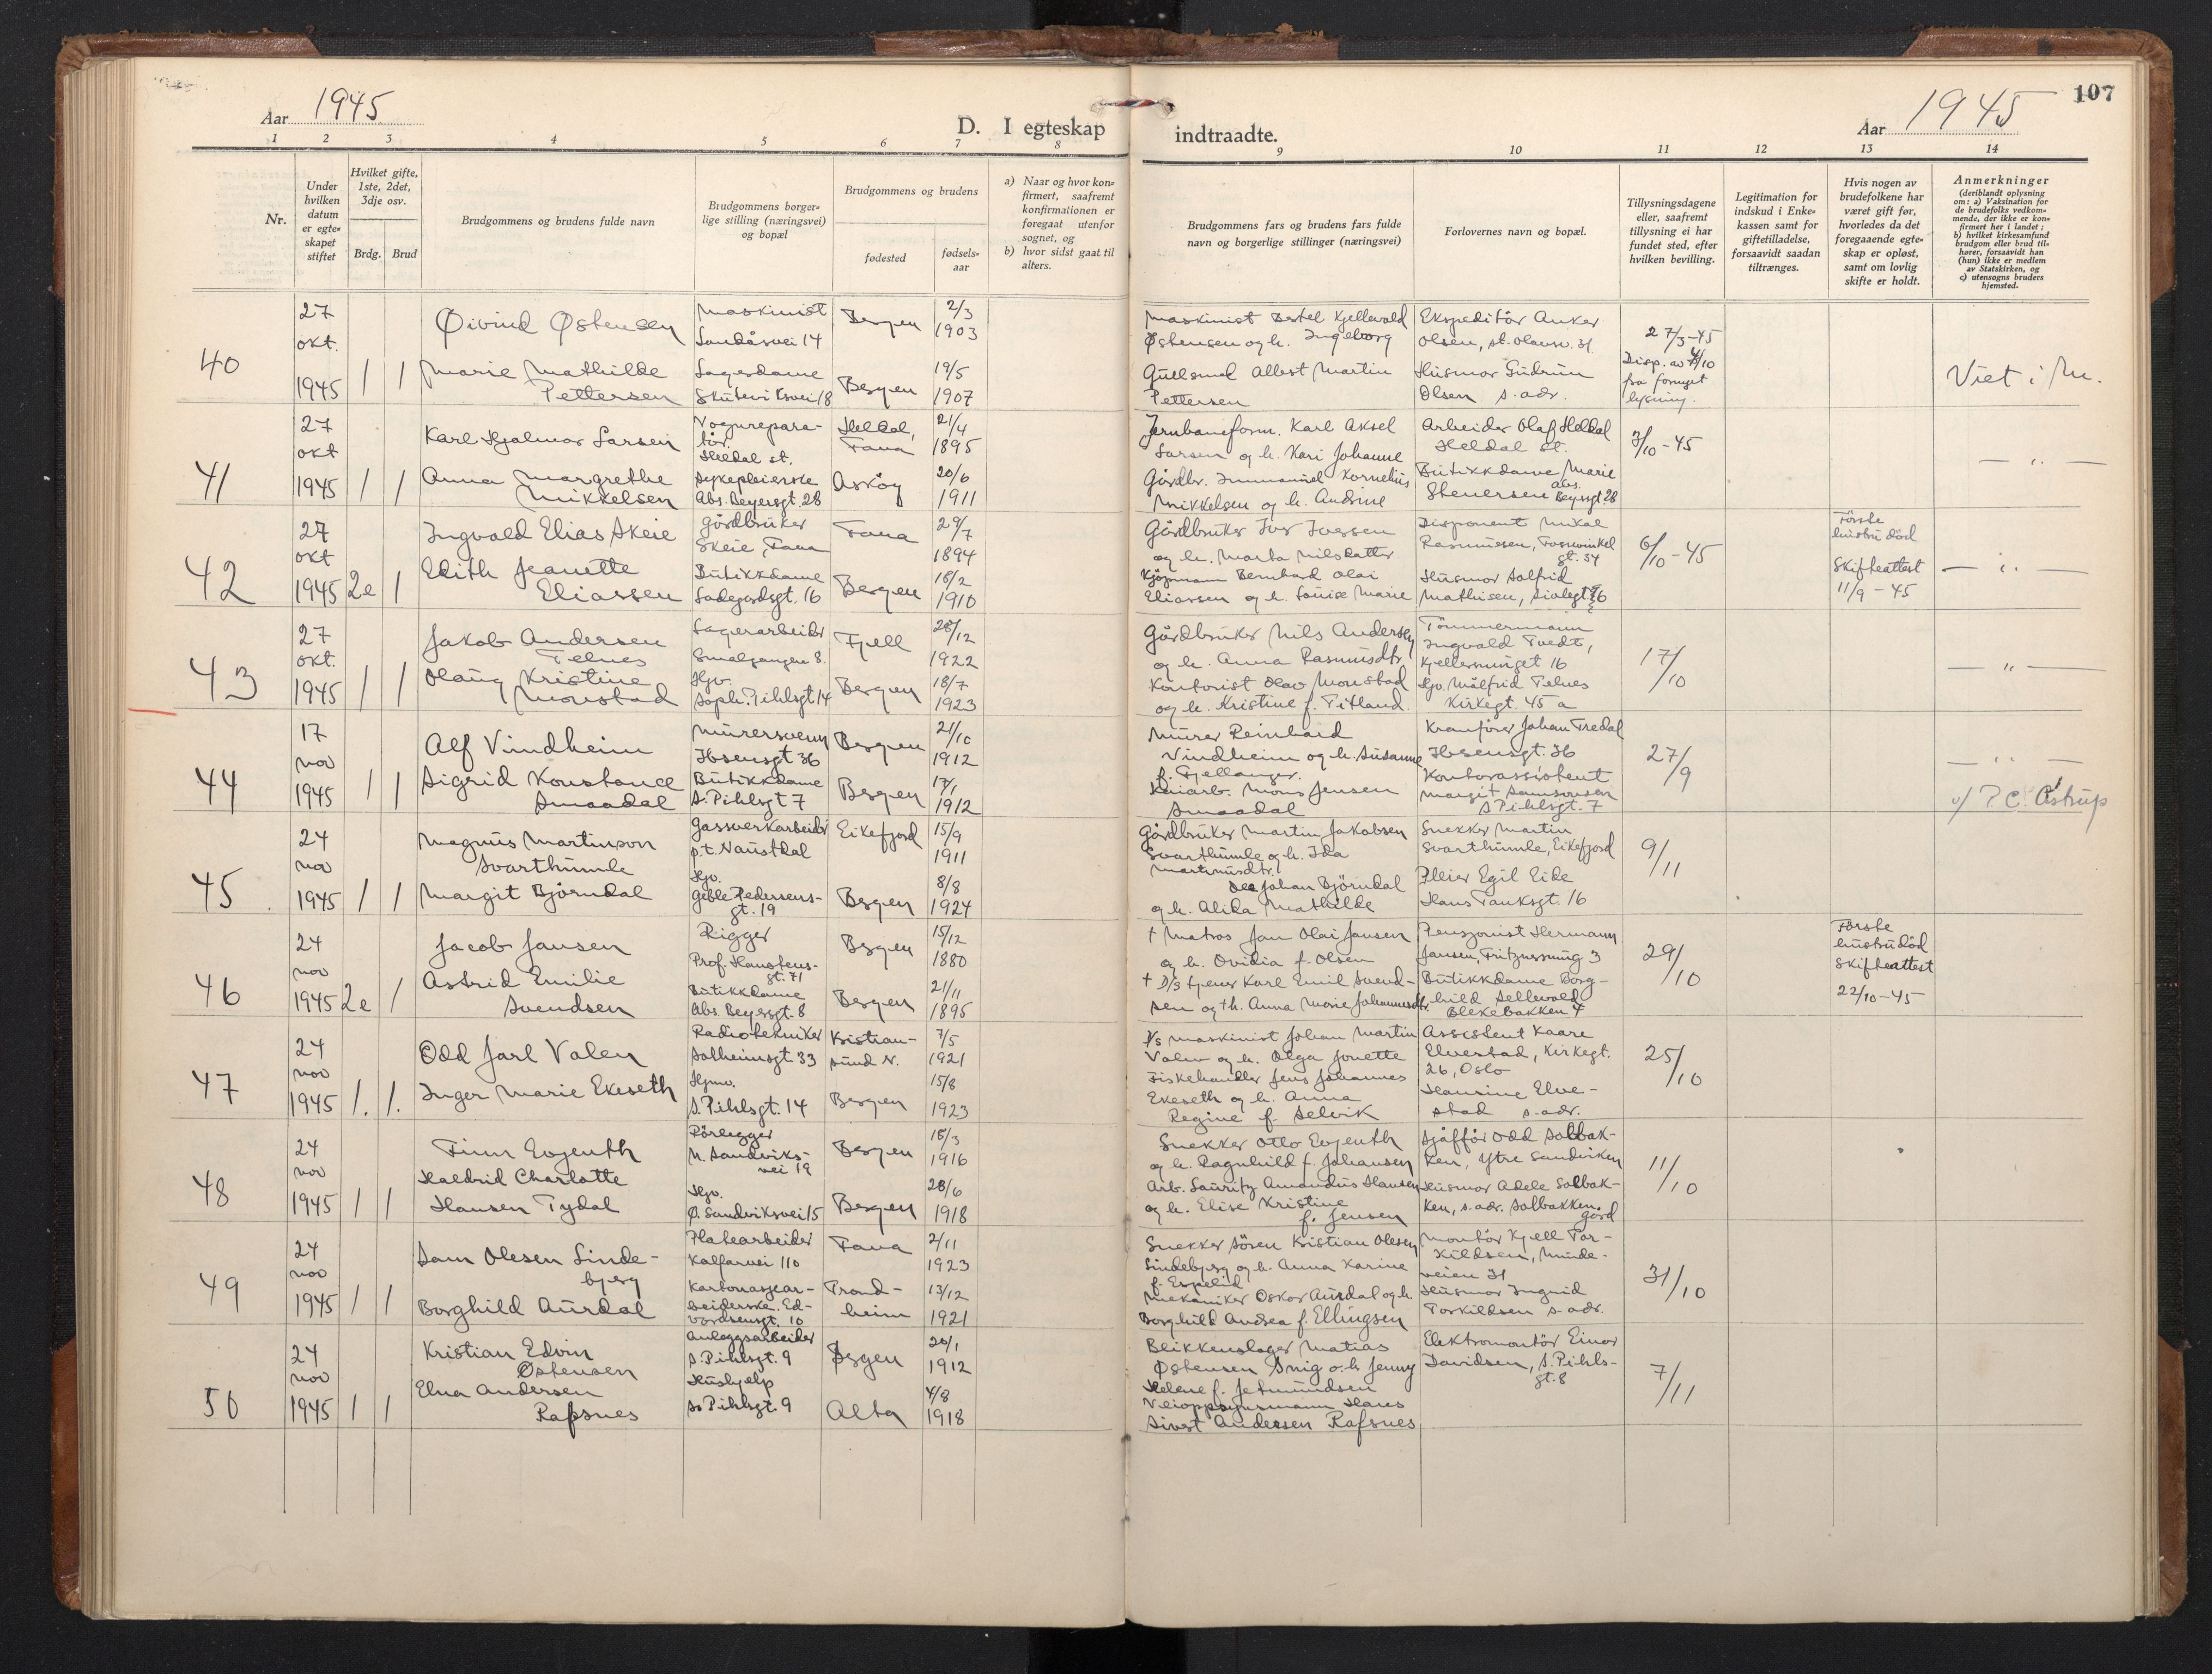 Aar 1945
D. I egteskap indtraadte.
Aar 1945
107
1 2 3 4 5 6 7 8 9 10 11 12 13 14
Nr.
Under hvilken datum er egteskapet stiftet
Hvilket gifte, 1ste, 2det, 3dje osv.
Brdg. Brud
Brudgommens og brudens fulde navn
Brudgommens borgerlige stilling (næringsvei) og bopæl
Brudgommens og brudens
fødested
fødselsaar
a) Naar og hvor konfirmert, saafremt konfirmationen er foregaat utenfor sognet, og
b) hvor sidst gaat til alters.
Brudgommens fars og brudens fars fulde navn og borgerlige stillinger (næringsvei)
Forlovernes navn og bopæl.
Tillysningsdagene eller, saafremt tillysning ei har fundet sted, efter hvilken bevilling.
Legitimation for indskud i Enkekassen samt for giftetilladelse, forsaavidt saadan tiltrænges.
Hvis nogen av brudefolkene har været gift før, hvorledes da det foregaaende egteskap er opløst, samt om lovlig skifte er holdt.
Anmerkninger
(deriblandt oplysning om: a) Vaksination for de brudefolks vedkommende, der ikke er konfirmert her i landet; b) hvilket kirkesamfund brudgom eller brud tilhører, forsaavidt han (hun) ikke er medlem av Statskirken, og c) utensogns bruders hjemsted.
40
27 okt. 1945
1 1
Øivind Østensen
Marie Mathilde Pettersen
Maskinist
Landåsvei 14
Lagerdame
Skuteviksvei 18
Bergen
Bergen
2/3 1903
19/5 1907
Maskinist Bertel Kjellevold
Østensen og h. Ingeborg
Gullsmed Albert Martin
Pettersen
Ekspeditör Anker
Olsen, st. Olavsv. 31
Husmor Gudrun
Olsen s. adr.
27/3-45
Disp. av 4/10
fra fornyet
lysning.
Viet i M.
41
27 okt 1945
1 1
Karl Hjalmar Larsen
Anna Margrethe Mikkelsen
Vognreparatör
Heldal st.
Sykepleierske
Abs. Beyersgt. 28
Heldal, Fana
Askøy
21/4 1895
20/6 1911
Jernbaneform. Karl Aksel
Larsen og h. Kari Johanne
Gårdbr. Immanuel Kornelius
Mikkelsen og h. Andrine
Arbeider Olaf Heldal
Heldal st.
Butikkdame Marie
Stenersen Abs. Beyersgt. 28
3/10-45
— " —
42
27 okt 1945
2e 1
Ingvald Elias Skeie
Edith Jeanette Eliassen
Gårdbruker
Skeie, Fana
Butikkdame
Ladegårdsgt. 16
Fana
Bergen
29/7 1894
18/2 1910
Gårdbruker Iver Iversen
og h. Marta Nilsdatter
Kjøpmann Bernhard Olai
Eliassen og h. Louise Marie
Disponent Mikal
Rasmussen, Fosswinkel gt. 34
Husmor Solfrid
Mathisen,
6/10-45
Første hustru død
Skifteattest
11/9-45
— " —
43
27 okt. 1945
1 1
Jakob Andersen Telnes
Olaug Kristine Monstad
Lagerarbeider
Smalgangen 8.
Hjv.
Soph. Pihlsgt 14
Fjell
Bergen
28/12 1922
18/7 1923
Gårdbruker Nils Andersen
og h. Anna Rasmusdtr.
Kontorist Olav Monstad
og h. Kristine f. Titland.
Tömmermann
Ingvald Tvedt,
Kjellersmuget 16
Hjv. Målfrid Telnes
Kirkegt. 45 a
17/10
— " —
44
17 nov 1945
1 1
Alf Vindheim
Sigrid Konstance Smaadal
Murersvenn
Ibsensgt 36
Butikkdame
S. Pihlsgt 7
Bergen
Bergen
21/10 1912
17/1 1912
Murer Reinhard
Vindheim og h. Susanne
f. Fjellanger.
Kaiarb. Mons Jensen
Smaadal
Kranförer Johan Tredal
Ibsensgt. 36
Kontorassistent
Margit Samsonsen
S Pihlsgt. 7
27/9
— " —
v/ P. C. Astrup
45
24 nov 1945
1 1
Magnus Martinson Svarthumle
Margit Björndal
Gassverkarbeider
p.t. Naustdal
Hjv.
Geble Pedersensgt. 19
Eikefjord
Bergen
15/9 1911
8/8 1924
Gårdbruker Martin Jakobsen
Svarthumle og h. Ida
Martinusdtr.
Johan Björndal
og h. Alida Mathilde
Snekker Martin
Svarthumle, Eikefjord
Pleier Egil Eide
Hans Tanksgt. 16
9/11
46
24 nov 1945
2e 1
Jacob Jansen
Astrid Emilie Svendsen
Rigger
Prof. Hansteensgt. 71
Butikkdame
Abs. Beyersgt. 8
Bergen
Bergen
15/12 1880
21/11 1895
† Matros Jan Olai Jansen
og h. Ovidia f. Olsen
† D/s tjener Karl Emil Svendsen og † h. Anna Marie Johannesdtr.
Pensjonist Hermann
Jansen, Fritznersmug 3
Butikkdame Borghild Sellevold
Blekebakken 4
29/10
Første hustru død
Skifteattest
22/10-45
47
24 nov 1945
1. 1.
Odd Jarl Valen
Inger Marie Ekeseth
Radiotekniker
Solheimsgt. 33
Hjmv.
S. Pihlsgt. 14
Kristiansund N.
Bergen
7/5 1921
15/8 1923
D/s maskinist Johan Martin
Valen og h. Olga Jonette
Fiskehandler Jens Johannes
Ekeseth og h. Anna
Regine f. Selvik
Assistent Kaare
Elvestad, Kirkegt.
26, Oslo
Elvestad s. adr.
25/10
48
24 nov 1945
1 1
Finn Evjenth
Haldrid Charlotte
Hansen Tydal
Rörlegger
N. Sandviksvei 19
Hjv.
Ø. Sandviksvei 15
Bergen
Bergen
18/3 1916
28/6 1918
Snekker Otto Evjenth
og h. Ragnhild f. Johansen
Arb. Lauritz Amandus Hansen
og h. Elise Kristine
f. Jensen
Sjåffør Odd Solbakken, Ytre Sandviken
Husmor Adele Solbakken, s. adr. Solbakken gård
11/10
49
24 nov 1945
1 1
Sam Olesen Lindebjerg
Borghild Aurdal
Platearbeider
Kalfarvei 110
Kartonasjearbeiderske. Edvardsensgt. 10
Fana
Trondheim
2/11 1923
13/12 1921
Snekker Sören Kristian Olesen
Lindebjerg og h. Anna Karine
f. Espelid
Mekaniker Oskar Aurdal og h.
Borghild Andrea f. Ellingsen
Montör Kjell Torkildsen, Mindeveien 31
Husmor Ingrid
Torkildsen s. adr.
31/10
50
24 nov 1945
1 1
Kristian Edvin Østensen
Elna Andersen Rafsnes
Anleggsarbeider
S. Pihlsgt. 9
Hushjelp
S. Pihlsgt. 9
Bergen
Alta
20/1 1912
4/8 1918
Blikkenslager Matias
Østensen Snig o. h. Jenny
Helene f. Jetmundsen
Veioppsynsmann Hans
Sivert Andersen Rafsnes
Elektromontör Einar
Davidsen, S. Pihlsgt. 8
7/11